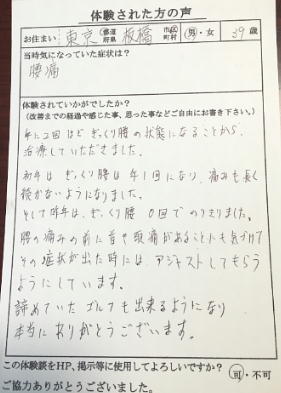 体験された方の声
お住まい 東京 都道府県 板橋 市区町村 男・女 39歳
当時気になっていた症状は?
腰痛
体験されていかがでしたか?
(改善までの経過や感じた事、思った事などご自由にお書き下さい。)
年に2回ほどぎっくり腰の状態になることから、
治療していただきました。
初年はぎっくり腰は年1回になり、痛みも長く
続かないようになりました。
そして昨年は、ぎっくり腰0回でのりきりました。
腰の痛みの前に首や頭痛があることにも気づけて
その症状が出た時には、アジャストしてもらう
ようにしています。
諦めていたゴルフも出来るようになり
本当にありがとうございます。
この体験談をHP、掲示等に使用してよろしいですか? 可・不可
ご協力ありがとうございました。